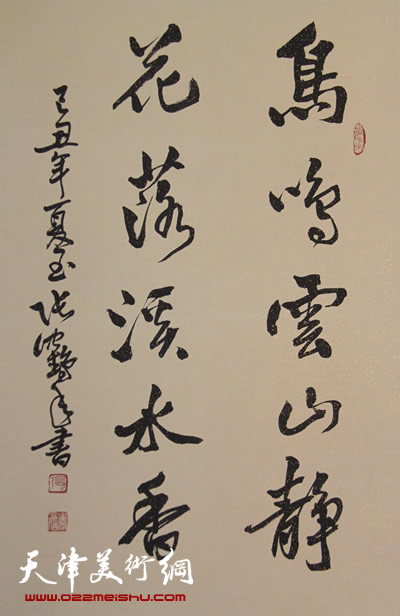 鳥鳴雲山静
花落溪水香
己丑年夏至 张 鹤年書
天津美術網
www.022meishu.com